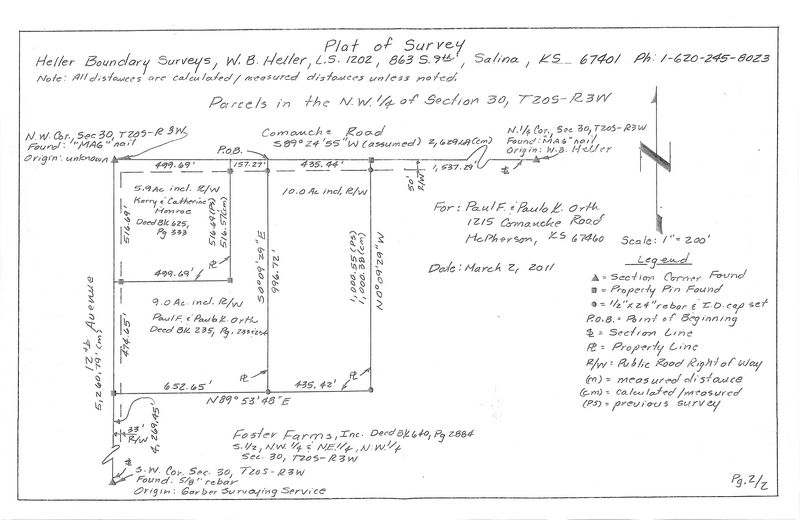 Plat of Survey
Heller Boundary Surveys, W.B. Heller, L.S. 1202, 863 S. 9th, Salina, KS 67401 Ph: 1-620-245-8023
Note: All distances are calculated/measured distances unless noted.
Parcels in the N.W. 1/4 of Section 30, T20S-R3W
N.W. Cor., Sec 30, T20S-R3W
Found: "MAG" nail
Origin: unknown
P.O.B.
Comanche Road
S89°24'55"W (assumed) 2,629.69 (cm)
N.1/4 Cor., Sec 30, T20S-R3W
Found: "MAG" nail
Origin: W.B. Heller
499.69'
157.27'
435.44'
1,537.29'
50'
R/W
5.9 Ac incl. R/W
Kerry & Catherine
Monroe
Deed Bk 625,
Pg 333
516.69'
516.69 (PS)
516.57 (cm)
10.0 Ac incl. R/W
499.69'
9.0 Ac. incl. R/W
Paul F. & Paula K. Orth
Deed Bk 235, Pg.
S0°09'29"E
996.72'
1,000.55 (PS)
1,000.38 (cm)
N0°09'29"W
474.65'
12th Avenue
5,260.79' (cm)
652.65'
435.42'
N89°53'48"E
33'
R/W
4,269.45'
Foster Farms, Inc. Deed Bk 640, Pg 2884
S.1/2, N.W. 1/4 & N.E. 1/4, N.W. 1/4
Sec. 30, T20S-R3W
S.W. Cor. Sec. 30, T20S-R3W
Found: 5/8" rebar
Origin: Garber Surveying Service
For: Paul F. & Paula K. Orth
1215 Comanche Road
McPherson, KS 67460
Date: March 2, 2011
Scale: 1"=200'
Legend
▲ = Section Corner Found
■ = Property Pin Found
● = 1/2"x24" rebar & I.D. cap set
P.O.B. = Point of Beginning
℄ = Section Line
PL = Property Line
R/W = Public Road Right of Way
(m) = measured distance
(cm) = calculated/measured
(PS) = previous survey
Pg. 2/2